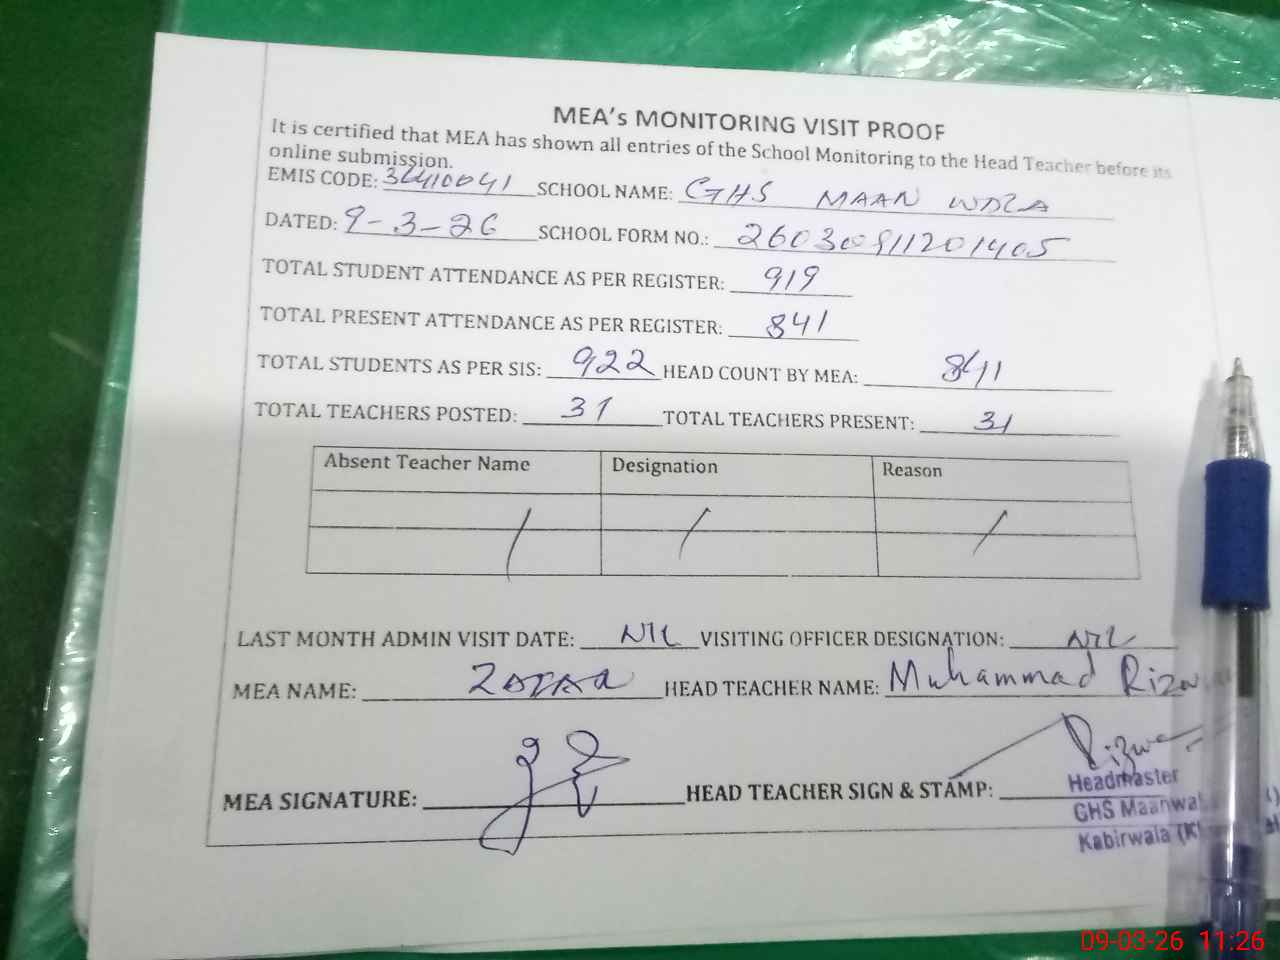 MEA's MONITORING VISIT PROOF
It is certified that MEA has shown all entries of the School Monitoring to the Head Teacher before its
online submission.
EMIS CODE: 36410041 SCHOOL NAME: GHS MAAN WALA
DATED: 9-3-26 SCHOOL FORM NO.: 26030911201405
TOTAL STUDENT ATTENDANCE AS PER REGISTER: 919
TOTAL PRESENT ATTENDANCE AS PER REGISTER: 841
TOTAL STUDENTS AS PER SIS: 922 HEAD COUNT BY MEA: 841
TOTAL TEACHERS POSTED: 31 TOTAL TEACHERS PRESENT: 31
Absent Teacher Name Designation Reason
LAST MONTH ADMIN VISIT DATE: NIL VISITING OFFICER DESIGNATION: NIL
MEA NAME: HEAD TEACHER NAME: Muhammad
MEA SIGNATURE: HEAD TEACHER SIGN & STAMP:
Headmaster
GHS
Kabirwala
09-03-26 11:26